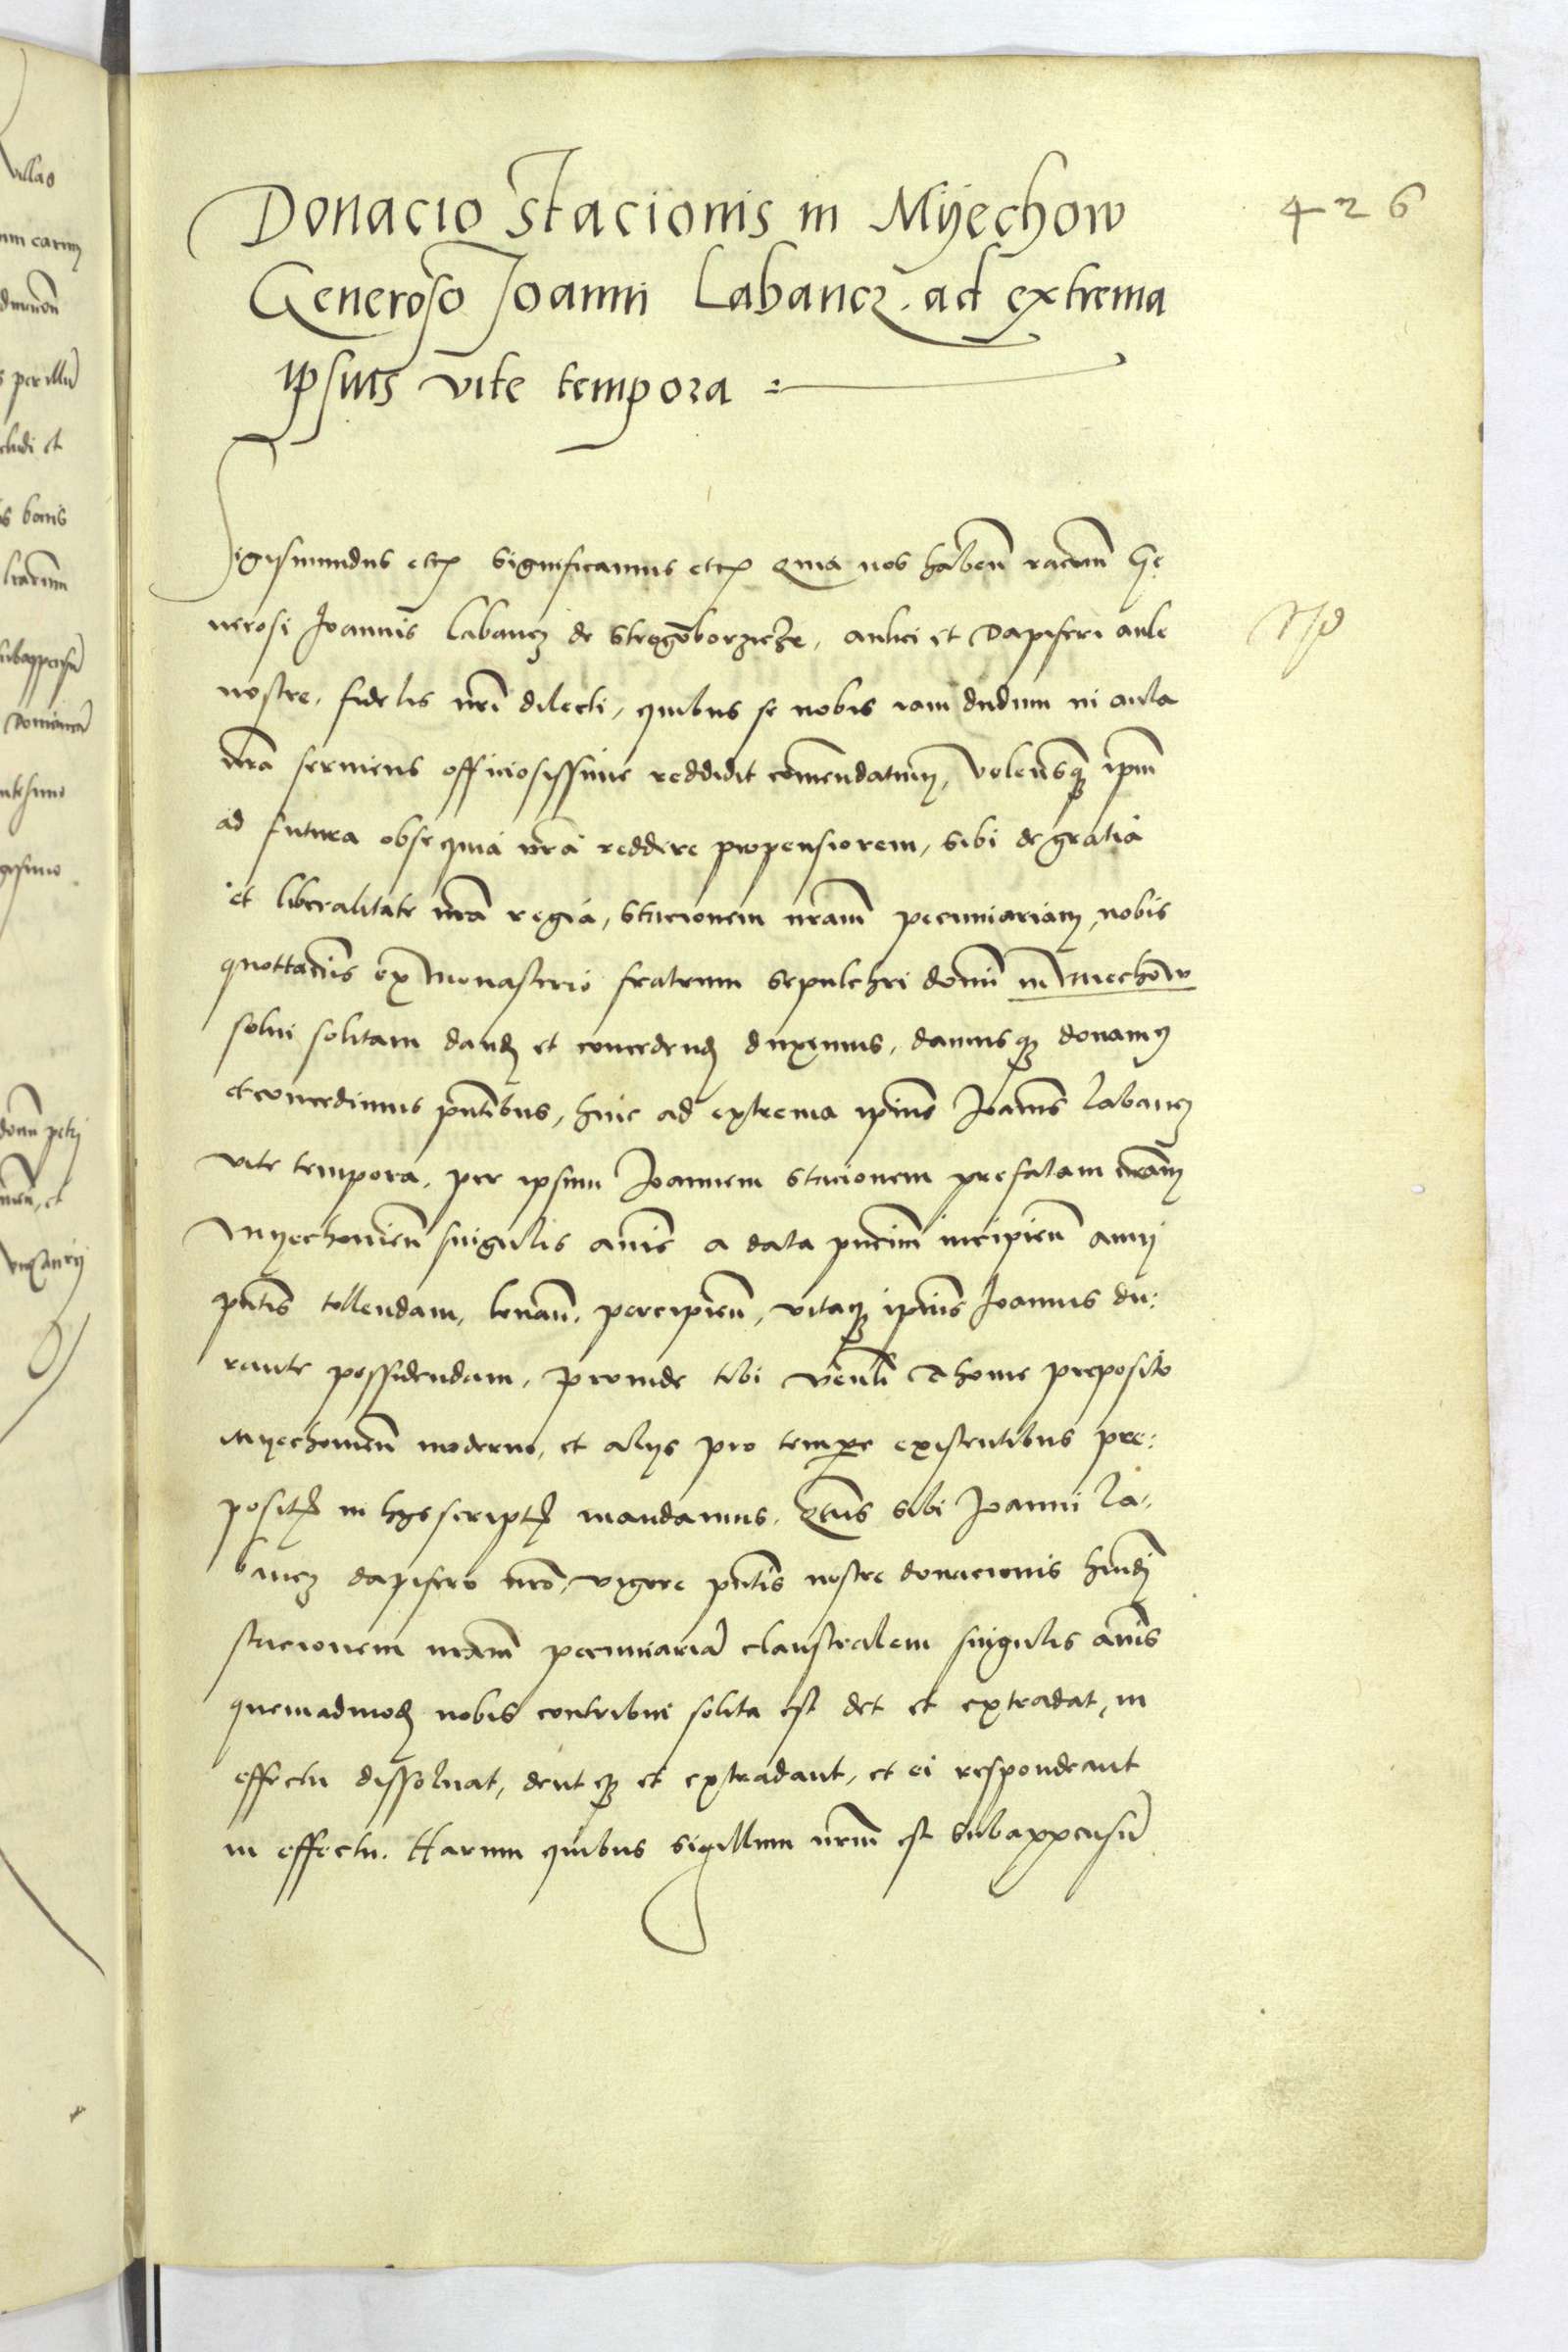 426
Donacio Stacionis in Mÿechow
Generoso Joanni Labancz. ad extrema
ipsius vite tempora :
Sigismundus etc significamus etc Quia nos haben̄ racōem Ge
nerosi Joannis Labancz de Stregoborzicze, aulici et Dapiferi aule
nostre, fidelis nr̄i dilecti, quibus se nobis iam dudum in aula
nr̄a seruiens officiosissime reddidit comendatum, Volensq₃ ip̄m
ad futura obsequia nr̄a reddere propensiorem, sibi de gratia
et liberalitate nr̄a regia, stacionem nr̄am pecuniariam, nobis
quottannis ex Monasterio fratrum Sepulchri domī in Miechow
solui solitam dand et concedend duximus, damusq₃ donamus
et concedimus pn̄tibus, huic ad extrema ipsius Joannis Labancz
vite tempora, per ipsum Joannem stacionem prefatam nr̄am
Myechouien̄ singulis annis a data pn̄cium incipien̄ anni
pn̄tis tollendam, leuan̄, percipien̄, vitaq₃ ipsius Joannis du:
rante possidendam, Proinde tibi Ven̄li Thome preposito
Myechouien̄ moderno, et alijs pro tempore existentibus pre:
posit in hys script mandamus. Qt̄us sibi Joanni La:
bancz dapifero nr̄o, vigore pn̄tis nostre donacionis hm̄oi
stacionem nr̄am pecuniariā claustralem singulis annis
quemadmod nobis contribui solita est det et extradat, in
effectu dissoluat, dentq₃ et extradant, et ei respondeant
in effectu. Harum quibus sigillum nr̄um est subappensū